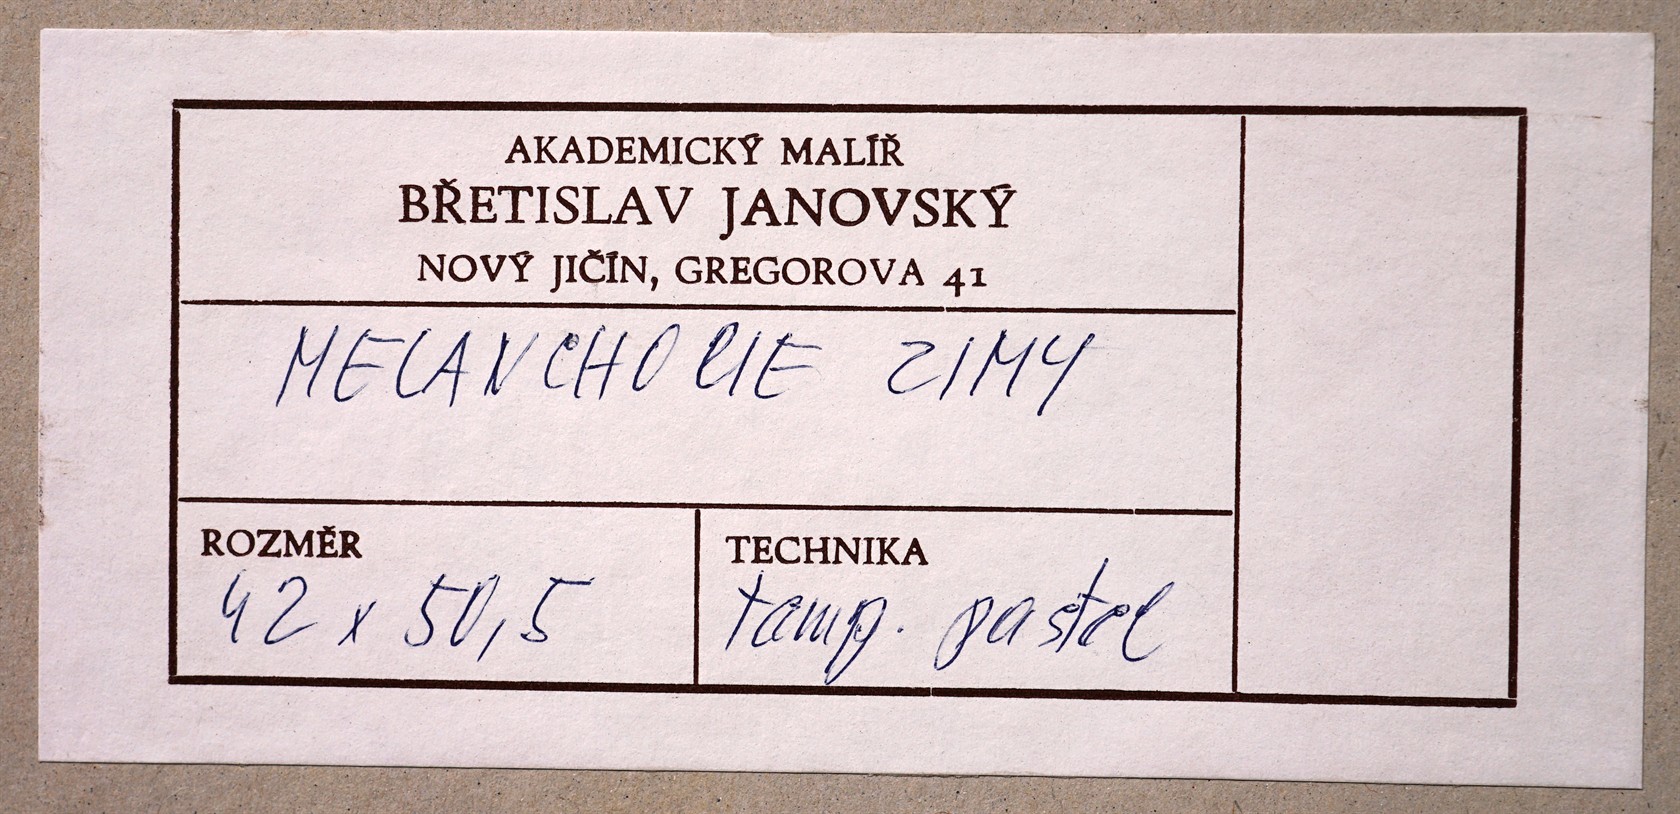 AKADEMICKÝ MALÍŘ
BŘETISLAV JANOVSKÝ
NOVÝ JIČÍN, GREGOROVA 41
MELANCHOLIE ZIMY
ROZMĚR
42 x 50,5
TECHNIKA
temp. pastel